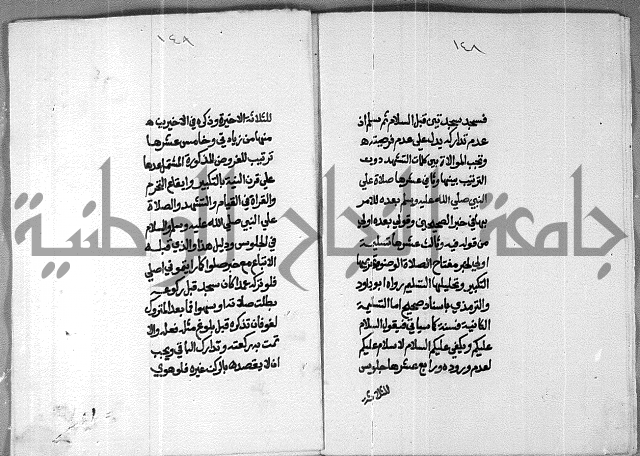 ١٤٨
فسجد سجدتين قبل السلام ثم سلم اذ
عدم تداركه يدل على عدم فرضيته
وتجب الموالاة بين كلمات التشهد دون
الترتيب بينها وثاني عشرها صلاة على
النبي صلى الله عليه وسلم بعده للامر
بها في خبر الصحيحين وقولي بعده اولى
من قوله فيه وثالث عشرها تسليمة
اولى لخبر مفتاح الصلاة الوضوء وتحريمها
التكبير وتحليلها التسليم رواه ابو داود
والترمذي باسناد صحيح اما التسليمة
الثانية فسنة كما سياتي فيقول السلام
عليكم ويكفي عليكم السلام لا سلام عليكم
لعدم وروده ورابع عشرها جلوس
للثلاثة
١٤٨
للثلاثة الاخيرة وذكره في الاخيرين
منها من زيادتي وخامس عشرها
ترتيب للفروض المذكورة المشتمل عدها
على قرن النية بالتكبير وايقاع التحرم
والقراة في القيام والتشهد والصلاة
على النبي صلى الله عليه وسلم والسلام
في الجلوس ودليل هذا والذي قبله
الاتباع مع خبر صلوا كما رايتموني اصلي
فلو تركه عمدا كان سجد قبل ركوعه
بطلت صلاته او سهوا فما بعد المتروك
لغو فان تذكره قبل بلوغ مثله فعله والا
تمت به ركعته وتدارك الباقي ويجب
ان لا يقصد بالركن غيره فلو هوى
جامعة النجاح الوطنية